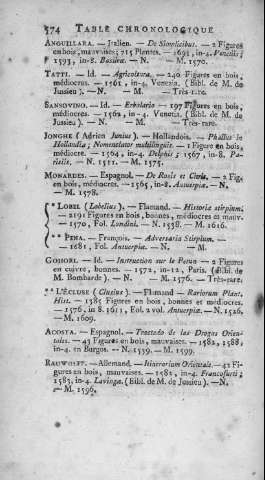 574 TABLE CHRONOLOGIQUE
ANGUILLARA. — Italien. — De Simplicibus. — 2 Figures
en bois, mauvaises; 715 Plantes. — 1561, in-4. Venetiis;
1593, in-8. Basileæ. — N. — M. 1570.
TATTI. — Id. — Agricoltura. — 240 Figures en bois,
médiocres. — 1561, in-4. Venezia. (Bibl. de M. de
Jussieu). — N. — M — Très-rare.
SANSOVINO. — Id. — Erbolario — 197 Figures en bois,
médiocres. — 1562, in-4. Venezia. (Bibl. de M. de
Jussieu.) — N. — M. — Très-rare.
JONGHE (Adrien Junius). — Hollandois. — Phallus in
Hollandia; Nomenclator multilinguis. — 1 Figure en bois,
médiocre. — 1564, in-4. Delphis; 1567, in-8. Pa-
risiis. — N. 1511. — M. 1575.
MONARDES. — Espagnol. — De Rosis et Citris. — 2 Fig.
en bois, médiocres. — 1565, in-8. Antuerpiæ. — N.
— M. 1578.
* LOBEL (Lobelius). — Flamand. — Historia stirpium.
— 2191 Figures en bois, bonnes, médiocres et mauv.
— 1570, Fol. Londini. — N. 1538. — M. 1616.
** PENA. — François. — Adversaria Stirpium. —
— 1681, Fol. Antuerpiæ. — N. — M
GOHORI. — Id. — Instruction sur le Petun — 2 Figures
en cuivre, bonnes. — 1572, in-12, Paris. (Bibl. de
M. Bombarde). — N. — M. 1576. — Très-rare.
** L'ÉCLUSE (Clusius). — Flamand — Rariorum Plant.
Hist. — 1385 Figures en bois, bonnes et médiocres.
— 1576, in 8. 1611, Fol. 2 vol. Antuerpiæ. — N. 1526.
— M. 1609.
ACOSTA. — Espagnol. — Tractado de las Drogas Orien-
tales. — 43 Figures en bois, mauvaises. — 1582, 1588,
in-4. en Burgos. — N. 1539. — M. 1599.
RAUWOLFF. — Allemand. — Itinerarium Orientale. — 42 Fi-
gures en bois, mauvaises. — 1582, in-4. Francofurti;
1583, in-4. Lavingæ. (Bibl. de M. de Jussieu). — N.
— M. 1596.